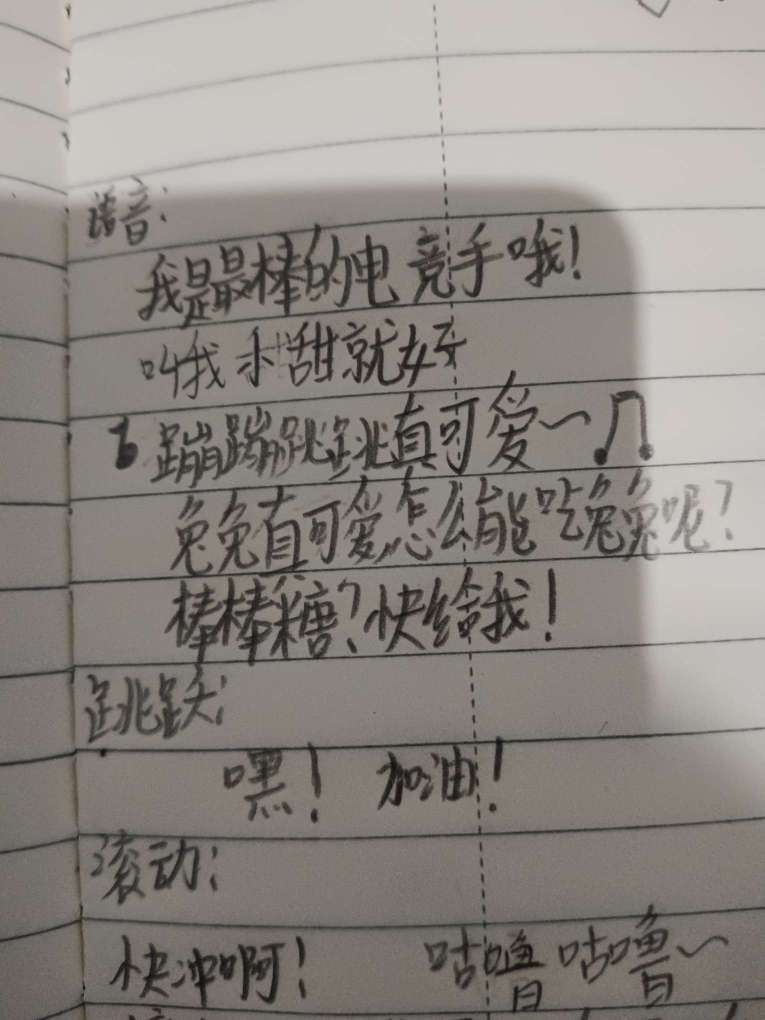 语音:
我是最棒的电竞手哦!
叫我小甜就好
蹦蹦跳跳真可爱~♫
兔兔真可爱,怎么能吃兔兔呢?
棒棒糖?快给我!
跳跃:
嘿! 加油!
滚动:
快冲啊! 咕噜咕噜~